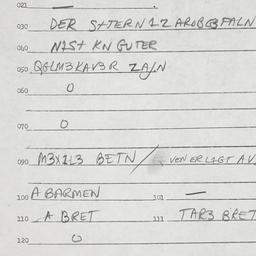 021 —
030 DER S+TERN 1Z AROBGEFALN
040 N1S+ KN GUTER
050 QGLM3KAV3R ZAJN
060 0
070 0
090 M3X1L3 BETN / VEN ER LAGT A.V.
100 A BARMEN 101 —
110 A BRET 111 TAR3 BRET
120 0